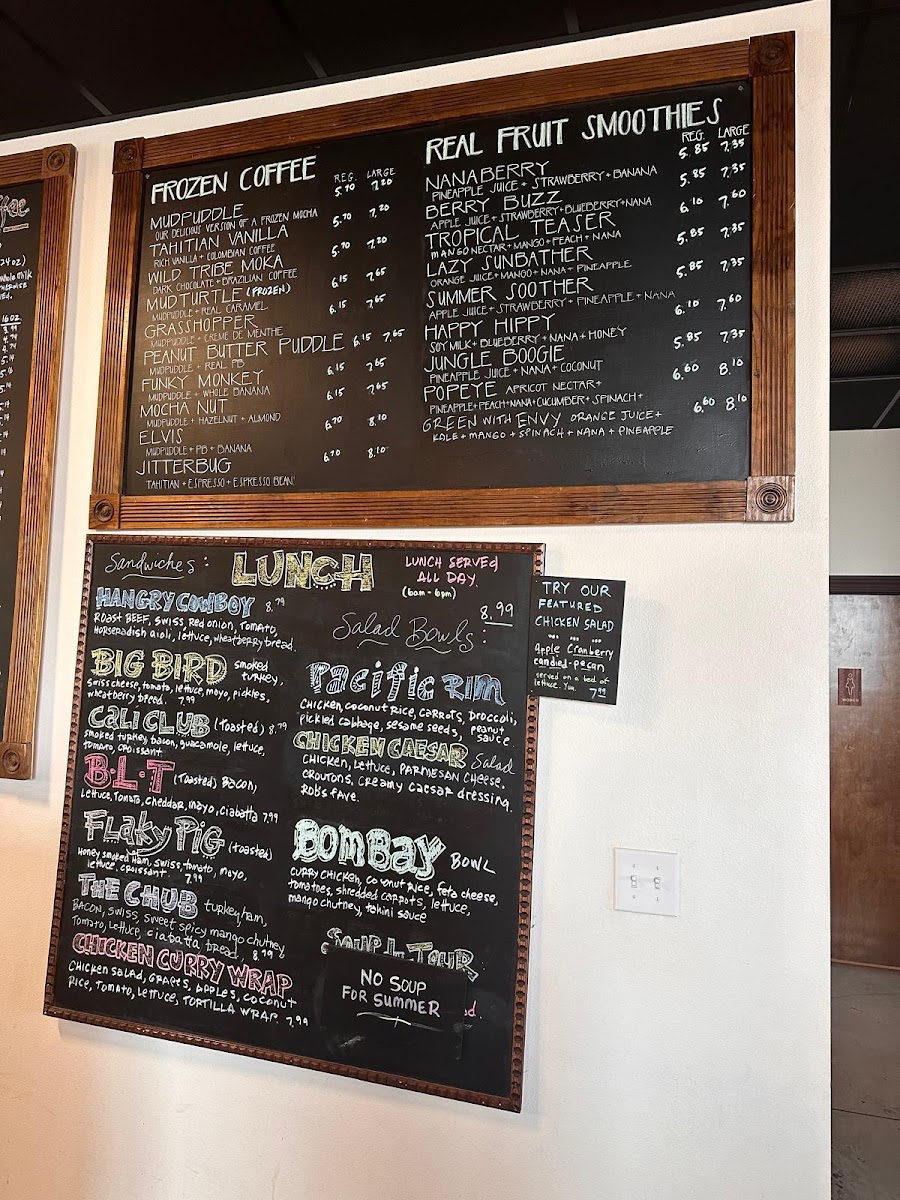 ffee
24oz)
whole milk
16oz
FROZEN COFFEE
REG. LARGE
5.70 7.20
MUDPUDDLE
OUR DELICIOUS VERSION OF A FROZEN MOCHA
5.70 7.20
TAHITIAN VANILLA
RICH VANILLA + COLOMBIAN COFFEE
5.70 7.20
WILD TRIBE MOKA
DARK CHOCOLATE + BRAZILIAN COFFEE
6.15 7.65
MUDTURTLE (FROZEN)
MUDPUDDLE + REAL CARAMEL
6.15 7.65
GRASSHOPPER
MUDPUDDLE + CREME DE MENTHE
PEANUT BUTTER PUDDLE 6.15 7.65
MUDPUDDLE + REAL PB
6.15 7.65
FUNKY MONKEY
MUDPUDDLE + WHOLE BANANA
6.15 7.65
MOCHA NUT
MUDPUDDLE + HAZELNUT + ALMOND
6.70 8.10
ELVIS
MUDPUDDLE + PB + BANANA
6.70 8.10
JITTERBUG
TAHITIAN + ESPRESSO + ESPRESSO BEAN
REAL FRUIT SMOOTHIES
REG. LARGE
5.85 7.35
NANABERRY
PINEAPPLE JUICE + STRAWBERRY + BANANA
5.85 7.35
BERRY BUZZ
APPLE JUICE + STRAWBERRY + BLUEBERRY + NANA
6.10 7.60
TROPICAL TEASER
MANGO NECTAR + MANGO + PEACH + NANA
5.85 7.35
LAZY SUNBATHER
ORANGE JUICE + MANGO + NANA + PINEAPPLE
5.85 7.35
SUMMER SOOTHER
APPLE JUICE + STRAWBERRY + PINEAPPLE + NANA
6.10 7.60
HAPPY HIPPY
SOY MILK + BLUEBERRY + NANA + HONEY
5.85 7.35
JUNGLE BOOGIE
PINEAPPLE JUICE + NANA + COCONUT
6.60 8.10
POPEYE APRICOT NECTAR +
PINEAPPLE + PEACH + NANA + CUCUMBER + SPINACH +
6.60 8.10
GREEN WITH ENVY ORANGE JUICE +
KALE + MANGO + SPINACH + NANA + PINEAPPLE
Sandwiches:
LUNCH
LUNCH SERVED
ALL DAY.
(6am - 6pm)
HANGRY COWBOY 8.79
ROAST BEEF, SWISS, Red onion, Tomato,
Horseradish aioli, lettuce, wheatberry bread.
BIG BIRD smoked
turkey,
Swiss cheese, tomato, lettuce, mayo, pickles,
wheatberry bread. 7.99
CALI CLUB (Toasted) 8.79
smoked turkey, bacon, guacamole, lettuce,
tomato, croissant
B·L·T (Toasted) Bacon,
Lettuce, Tomato, cheddar, mayo, ciabatta 7.99
FLAKY PIG (toasted)
Honey smoked ham, swiss, tomato, mayo,
lettuce, croissant. 7.99
THE CHUB turkey, ham,
BACON, SWISS, sweet spicy mango chutney,
Tomato, Lettuce, ciabatta bread, 8.79
CHICKEN CURRY WRAP
CHICKEN SALAD, GRAPES, APPLES, COCONUT
RICE, TOMATO, LETTUCE, TORTILLA WRAP. 7.99
8.99
Salad Bowls:
Pacific RIM
CHICKEN, COCONUT RICE, CARROTS, BROCCOLI,
pickled cabbage, sesame seeds, peanut
sauce.
CHICKEN CAESAR Salad
CHICKEN, LETTUCE, PARMESAN CHEESE,
CROUTONS, CREAMY CAESAR DRESSING.
ROB'S FAVE.
BOMBAY BOWL
CURRY CHICKEN, coconut Rice, feta cheese,
tomatoes, shredded carrots, lettuce,
mango chutney, tahini sauce
NO SOUP
FOR SUMMER
d.
TRY OUR
FEATURED
CHICKEN SALAD
Apple Cranberry
candied-pecan
served on a bed of
lettuce. Yum. 7.99
WOMEN